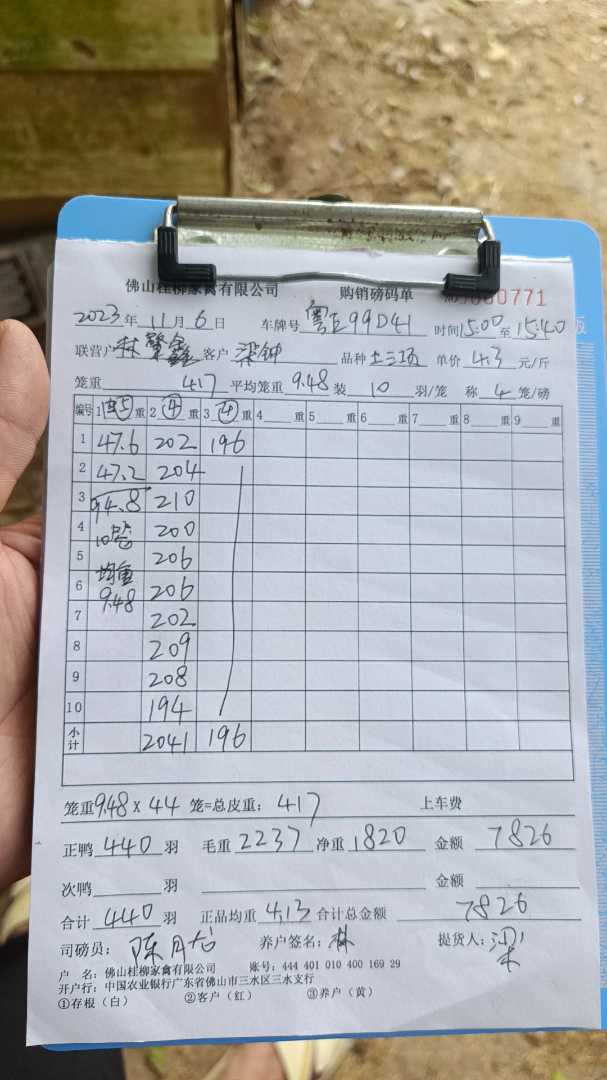 佛山桂柳家禽有限公司 购销磅码单 0000771
2023年11月6日 车牌号 粤E99D41 时间15:00至15:40
联营户 林肇鑫 客户 梁钟 品种 土三项 单价 4.3 元/斤
笼重 417 平均笼重 9.48 装 10 羽/笼 称 4 笼/磅
编号 1 重 2 ④ 重 3 ④ 重 4 重 5 重 6 重 7 重 8 重 9 重
1 47.6 202 196
2 47.2 204
3 94.8 210
4 10笼 200
5 均重 206
6 9.48 206
7 202
8 209
9 208
10 194
小计 2041 196
笼重9.48×44 笼=总皮重: 417 上车费
正鸭 440 羽 毛重 2237 净重 1820 金额 7826
次鸭 羽 金额
合计 440 羽 正品均重 4.13 合计总金额 7826
司磅员: 陈月 养户签名: 林 提货人: 梁
户 名: 佛山桂柳家禽有限公司 账号: 444 401 010 400 169 29
开户行: 中国农业银行广东省佛山市三水区三水支行
①存根(白) ②客户(红) ③养户(黄)